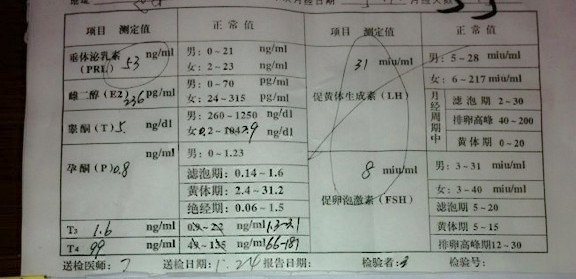 项目 测定值 正常值 项目 测定值 正常值
垂体泌乳素(PRL) 53 ng/ml 男:0~21 ng/ml
女:2~23 ng/ml
雌二醇(E2) 236 pg/ml 男:0~70 pg/ml
女:24~315 pg/ml
睾酮(T) ng/dl 男:260~1250 ng/dl
ng/dl
孕酮(P) 0.8 ng/ml 男:0~1.23
滤泡期:0.14~1.6
黄体期:2.4~31.2
绝经期:0.06~1.5
T3 1.6 ng/ml ng/ml
T4 99 ng/ml ng/ml
31 miu/ml
促黄体生成素(LH)
男:5~28 miu/ml
女:6~217 miu/ml
月经周期中
滤泡期 2~30
排卵高峰 40~200
黄体期 0~20
8 miu/ml
促卵泡激素(FSH)
男:3~31 miu/ml
女:3~40 miu/ml
滤泡期 5~20
黄体期 5~15
排卵高峰期12~30
送检医师: 送检日期: 24 报告日期: 检验者: 检验号: